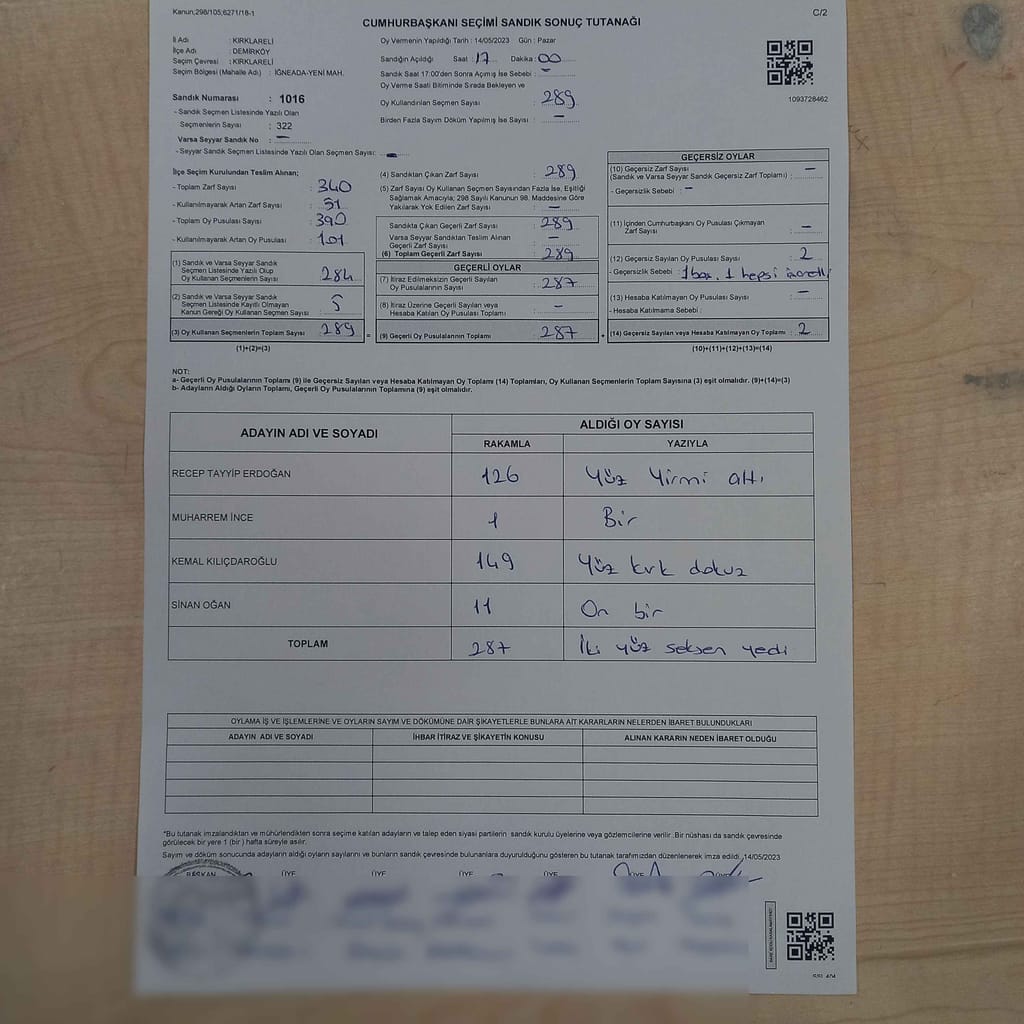 Kanun;298/105;6271/18-1
C/2
CUMHURBAŞKANI SEÇİMİ SANDIK SONUÇ TUTANAĞI
İl Adı : KIRKLARELİ
İlçe Adı : DEMİRKÖY
Seçim Çevresi : KIRKLARELİ
Seçim Bölgesi (Mahalle Adı) : İĞNEADA-YENİ MAH.
Sandık Numarası : 1016
- Sandık Seçmen Listesinde Yazılı Olan
Seçmenlerin Sayısı : 322
Varsa Seyyar Sandık No : -
- Seyyar Sandık Seçmen Listesinde Yazılı Olan Seçmen Sayısı: -
Oy Vermenin Yapıldığı Tarih : 14/05/2023 Gün : Pazar
Sandığın Açıldığı Saat : 17 Dakika : 00
Sandık Saat 17:00'den Sonra Açımış İse Sebebi : -
Oy Verme Saati Bitiminde Sırada Bekleyen ve
Oy Kullandırılan Seçmen Sayısı : 289
Birden Fazla Sayım Döküm Yapılmış İse Sayısı : -
1093728462
İlçe Seçim Kurulundan Teslim Alınan;
- Toplam Zarf Sayısı : 340
- Kullanılmayarak Artan Zarf Sayısı : 51
- Toplam Oy Pusulası Sayısı : 390
- Kullanılmayarak Artan Oy Pusulası : 101
(1) Sandık ve Varsa Seyyar Sandık
Seçmen Listesinde Yazılı Olup
Oy Kullanan Seçmenlerin Sayısı : 284
(2) Sandık ve Varsa Seyyar Sandık
Seçmen Listesinde Kayıtlı Olmayan
Kanun Gereği Oy Kullanan Seçmen Sayısı : 5
(3) Oy Kullanan Seçmenlerin Toplam Sayısı : 289
(1)+(2)=(3)
(4) Sandıktan Çıkan Zarf Sayısı : 289
(5) Zarf Sayısı Oy Kullanan Seçmen Sayısından Fazla İse, Eşitliği
Sağlamak Amacıyla; 298 Sayılı Kanunun 98. Maddesine Göre
Yakılarak Yok Edilen Zarf Sayısı : -
Sandıkta Çıkan Geçerli Zarf Sayısı : 289
Varsa Seyyar Sandıktan Teslim Alınan
Geçerli Zarf Sayısı : -
(6) Toplam Geçerli Zarf Sayısı : 289
GEÇERLİ OYLAR
(7) İtiraz Edilmeksizin Geçerli Sayılan
Oy Pusulasının Sayısı : 287
(8) İtiraz Üzerine Geçerli Sayılan veya
Hesaba Katılan Oy Pusulası Toplamı : -
= (9) Geçerli Oy Pusulalarının Toplamı : 287
GEÇERSİZ OYLAR
(10) Geçersiz Zarf Sayısı : -
(Sandık ve Varsa Seyyar Sandık Geçersiz Zarf Toplamı)
- Geçersizlik Sebebi : -
(11) İçinden Cumhurbaşkanı Oy Pusulası Çıkmayan
Zarf Sayısı : -
(12) Geçersiz Sayılan Oy Pusulası Sayısı : 2
- Geçersizlik Sebebi : 1 boş, 1 hepsi
(13) Hesaba Katılmayan Oy Pusulası Sayısı : -
- Hesaba Katılmama Sebebi :
+ (14) Geçersiz Sayılan veya Hesaba Katılmayan Oy Toplamı : 2
(10)+(11)+(12)+(13)=(14)
NOT:
a- Geçerli Oy Pusulalarının Toplamı (9) ile Geçersiz Sayılan veya Hesaba Katılmayan Oy Toplamı (14) Toplamları, Oy Kullanan Seçmenlerin Toplam Sayısına (3) eşit olmalıdır. (9)+(14)=(3)
b- Adayların Aldığı Oyların Toplamı, Geçerli Oy Pusulalarının Toplamına (9) eşit olmalıdır.
ADAYIN ADI VE SOYADI
ALDIĞI OY SAYISI
RAKAMLA YAZIYLA
RECEP TAYYİP ERDOĞAN 126 Yüz Yirmi altı
MUHARREM İNCE 1 Bir
KEMAL KILIÇDAROĞLU 149 Yüz kırk dokuz
SİNAN OĞAN 11 On bir
TOPLAM 287 İki yüz seksen yedi
OYLAMA İŞ VE İŞLEMLERİNE VE OYLARIN SAYIM VE DÖKÜMÜNE DAİR ŞİKAYETLERLE BUNLARA AİT KARARLARIN NELERDEN İBARET BULUNDUKLARI
ADAYIN ADI VE SOYADI İHBAR İTİRAZ VE ŞİKAYETİN KONUSU ALINAN KARARIN NEDEN İBARET OLDUĞU
*Bu tutanak imzalandıktan ve mühürlendikten sonra seçime katılan adayların ve talep eden siyasi partilerin sandık kurulu üyelerine veya gözlemcilerine verilir .Bir nüshası da sandık çevresinde
görülecek bir yere 1 (bir ) hafta süreyle asılır.
Sayım ve döküm sonucunda adayların aldığı oyların sayılarını ve bunların sandık çevresinde bulunanlara duyurulduğunu gösteren bu tutanak tarafımızdan düzenlenerek imza edildi. 14/05/2023
BAŞKAN ÜYE ÜYE ÜYE ÜYE ÜYE ÜYE